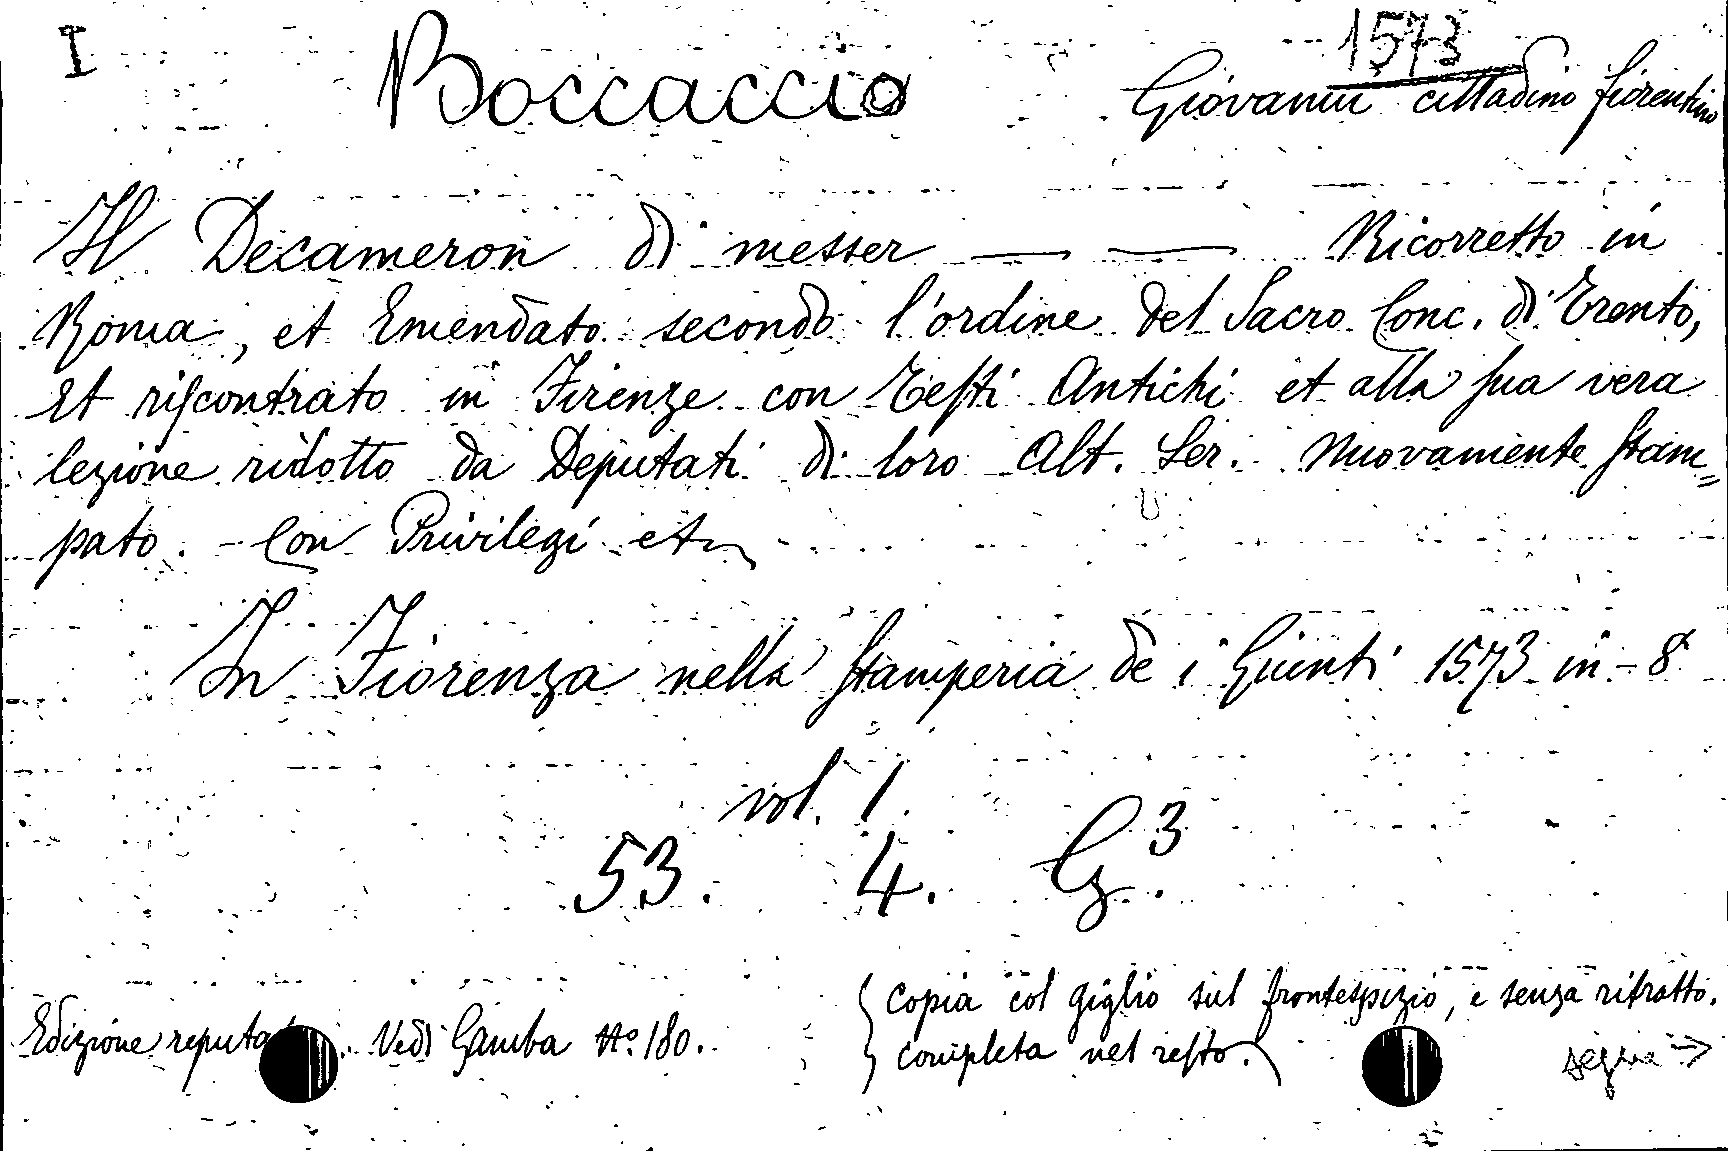 I
1573
Boccaccio Giovanni cittadino fiorentino
Il Decameron di messer — — Ricorretto in
Roma, et Emendato secondo l'ordine del Sacro Conc. di Trento,
Et riscontrato in Firenze con Testi Antichi et alla sua vera
lezione ridotto da Deputati di loro Alt. Ser. Nuovamente stam=
pato. - Con Privilegi et
In Fiorenza nella stamperia de i Giunti 1573 in-8
vol. 1.
53. 4. G³.
Edizione Vedi Gamba No. 180.
{ Copia col giglio sul frontespizio, e senza ritratto.
completa nel resto.
segue →